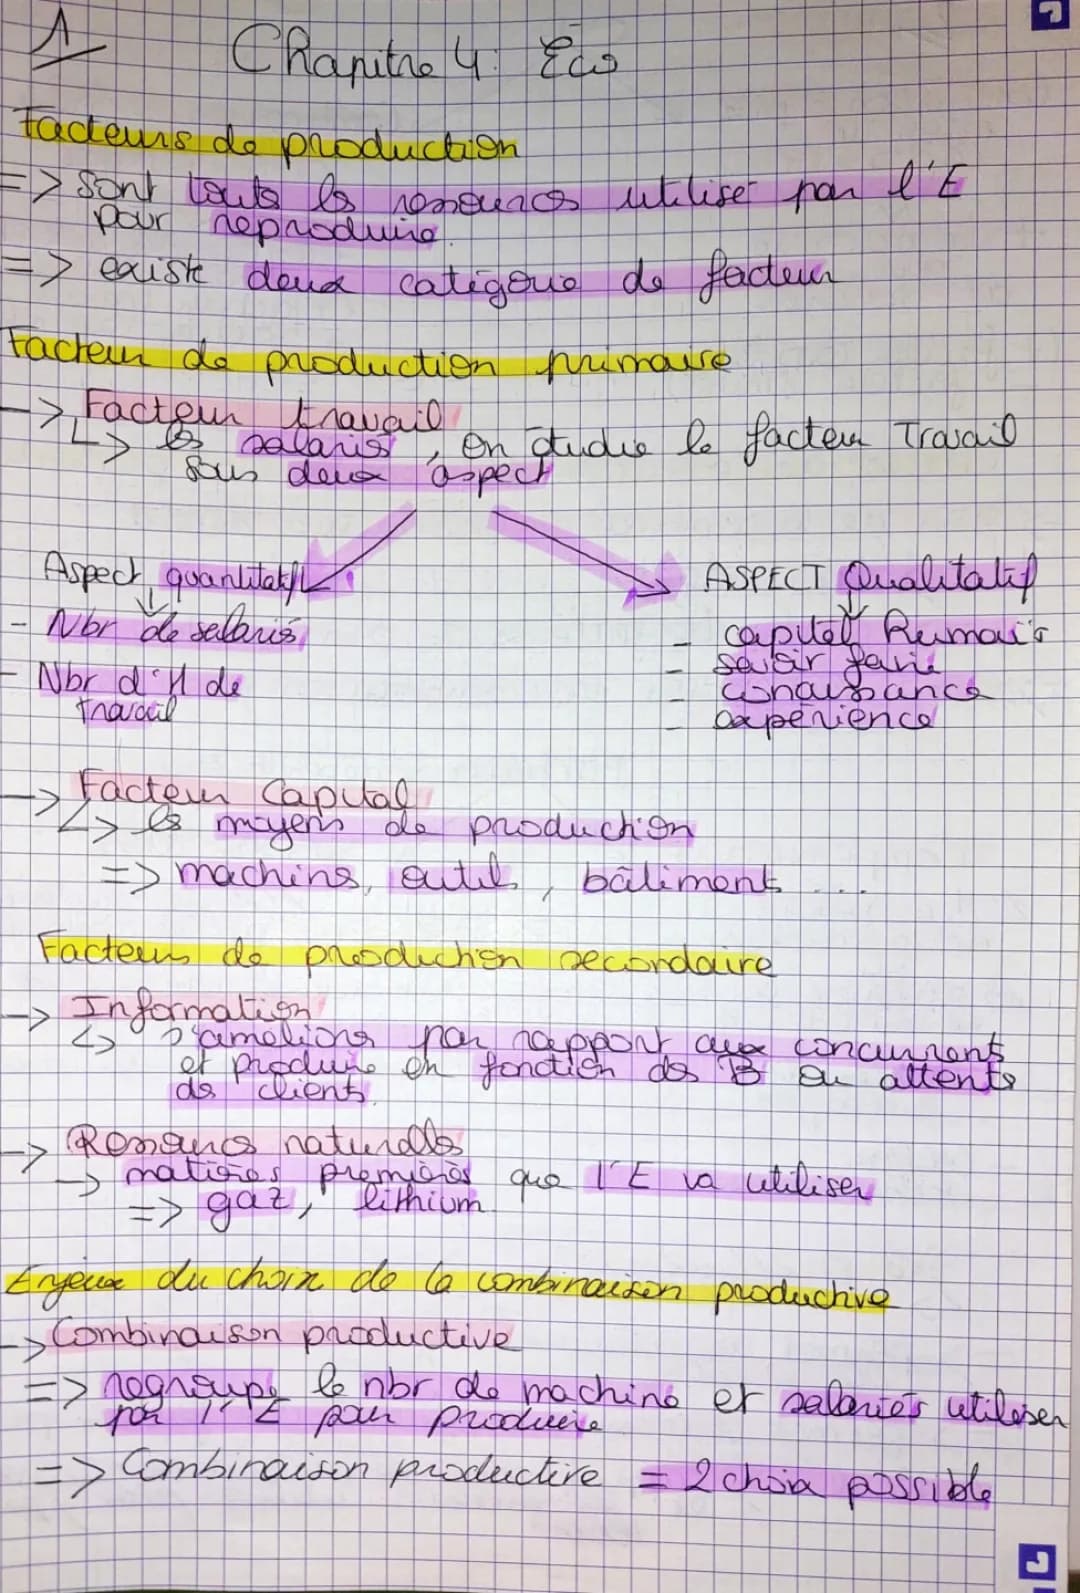 1
Chapitre 4: Éco
Facteurs de production
=> sont touts les ressources utiliser par l'E
pour reproduire.
=> existe deux catégorie de facteur
Facteur de production primaire
-> Facteur travail
↳ les salariés, on étudie le facteur Travail
sous deux aspect
Aspect quantitatif
ASPECT Qualitatif
- Nbr de salariés
- capital Humain
- savoir faire
- Nbr d'H de
- conaissance
travail
- expérience
-> Facteur Capital
↳ les moyens de production
=> machins, outil, bâtiment ....
Facteurs de production secondaire
-> Information
↳ s'améliorer par rapport aux concurrents
et produire en fonction des B ou attents
des clients.
-> Ressources naturelles
-> matières premières que l'E va utiliser
=> gaz, lithium.
Enjeux du choix de la combinaison productive
-> Combinaison productive
=> regroupe le nbr de machine et salariés utiliser
par l'E pour produire
=> Combinaison productive = 2 choix possible